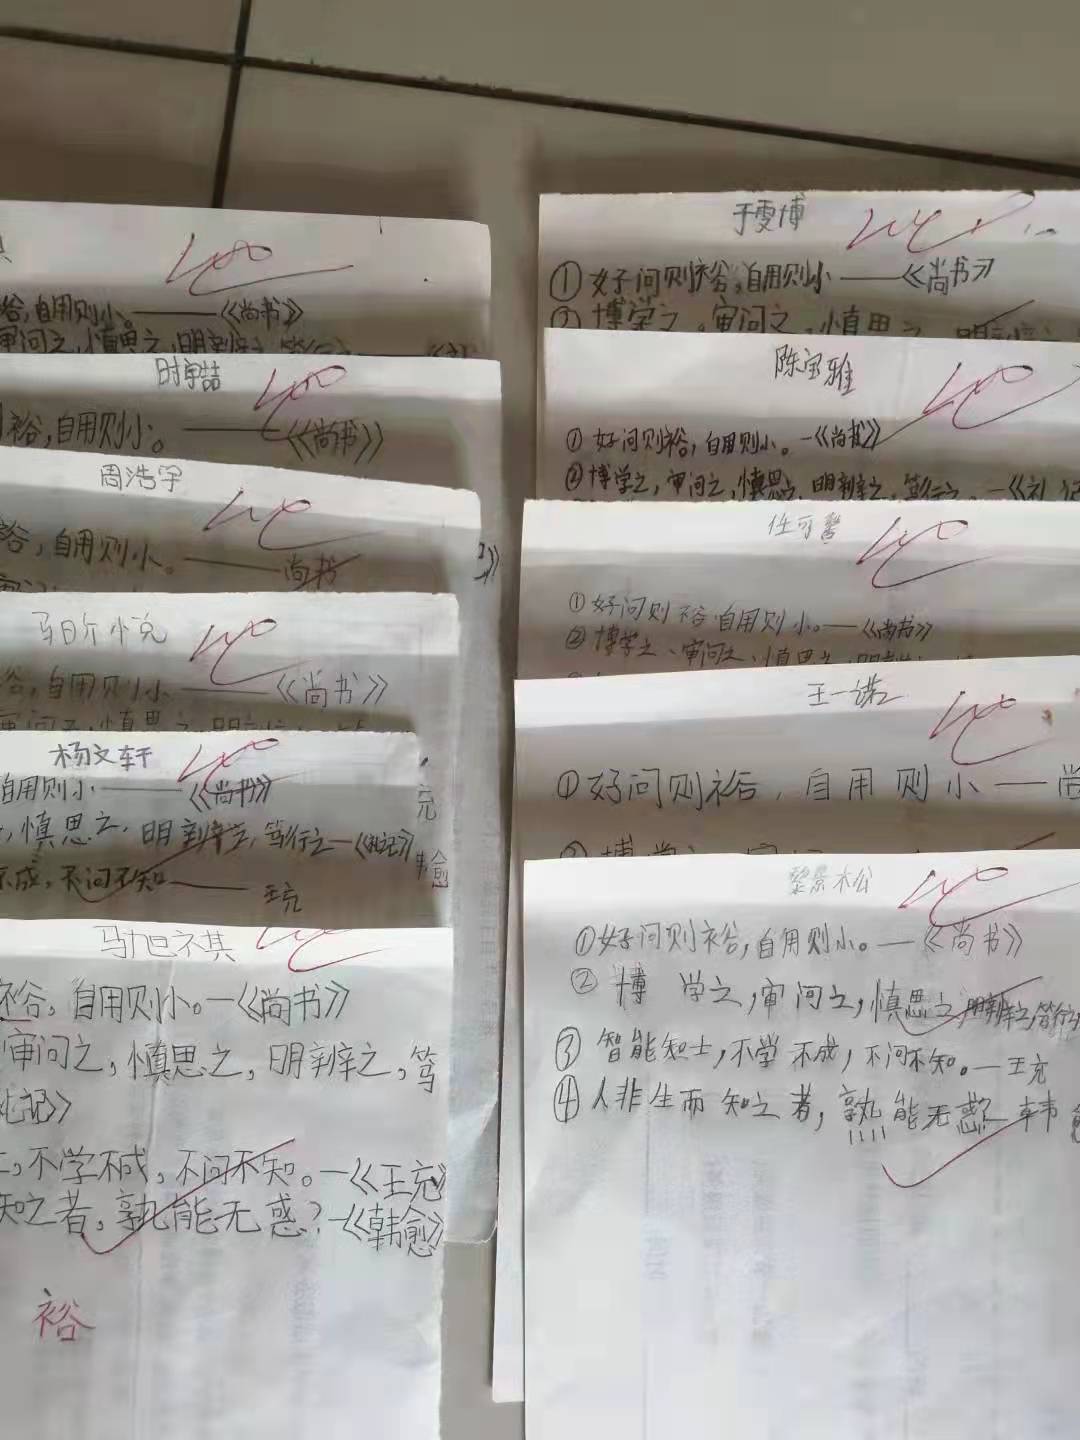 谷,自用则小。——《尚书》
审问之,慎思之,明辨之,笃行之
时宇喆
裕,自用则小。——《尚书》
周浩宇
裕,自用则小。——尚书
谷,自用则小——《尚书》
杨文轩
自用则小——《尚书》
,慎思之,明辨之,笃行之—《礼记》
不成,不问不知——王充
马旭祺
裕,自用则小。—《尚书》
审问之,慎思之,明辨之,笃
礼记》
,不学不成,不问不知。—《王充》
知之者,孰能无惑?—《韩愈》
裕
于雯博
①好问则裕,自用则小——《尚书》
②博学之,审问之,慎思之,明辨之
陈宝雅
①好问则裕,自用则小。—《尚书》
②博学之,审问之,慎思之,明辨之,笃行之。—《礼记
任可馨
①好问则裕自用则小。—《尚书》
②博学之、审问之、慎思之
王一诺
①好问则裕,自用则小——尚
黎景松
①好问则裕,自用则小。—《尚书》
②博学之,审问之,慎思之,明辨之,笃行之
③智能知士,不学不成,不问不知。—王充
④人非生而知之者,孰能无惑—韩愈